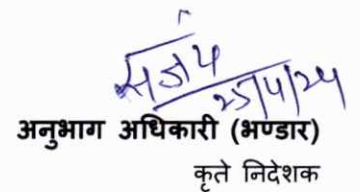 संजय
25/4/24
अनुभाग अधिकारी (भण्डार)
कृते निदेशक